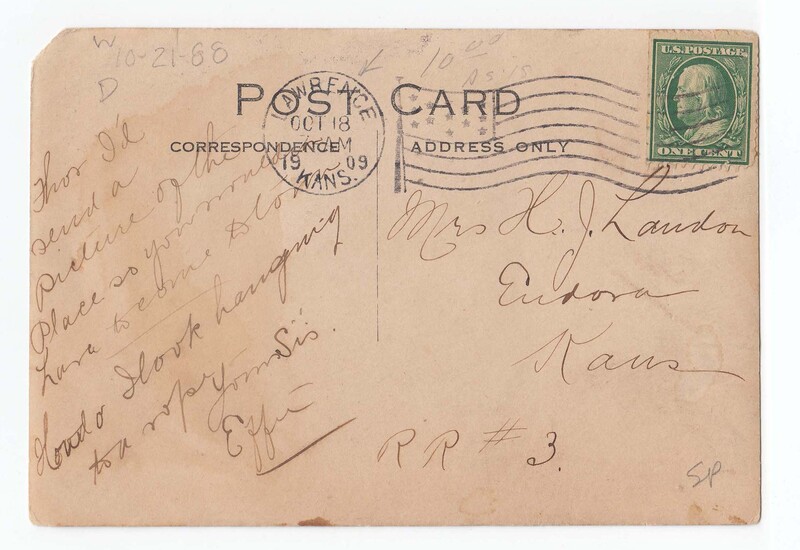 W
10-21-88
D
10.00
as is
U.S. POSTAGE
ONE CENT
POST CARD
LAWRENCE
OCT 18
AM
19 09
KANS.
CORRESPONDENCE
ADDRESS ONLY
Thor I'd
send a
picture of the
Place so you would
to come
How do I look hanging
to a rope Your Sis.
Effie
Mrs H. J. Landon
Eudora
Kans
RR # 3.
SP